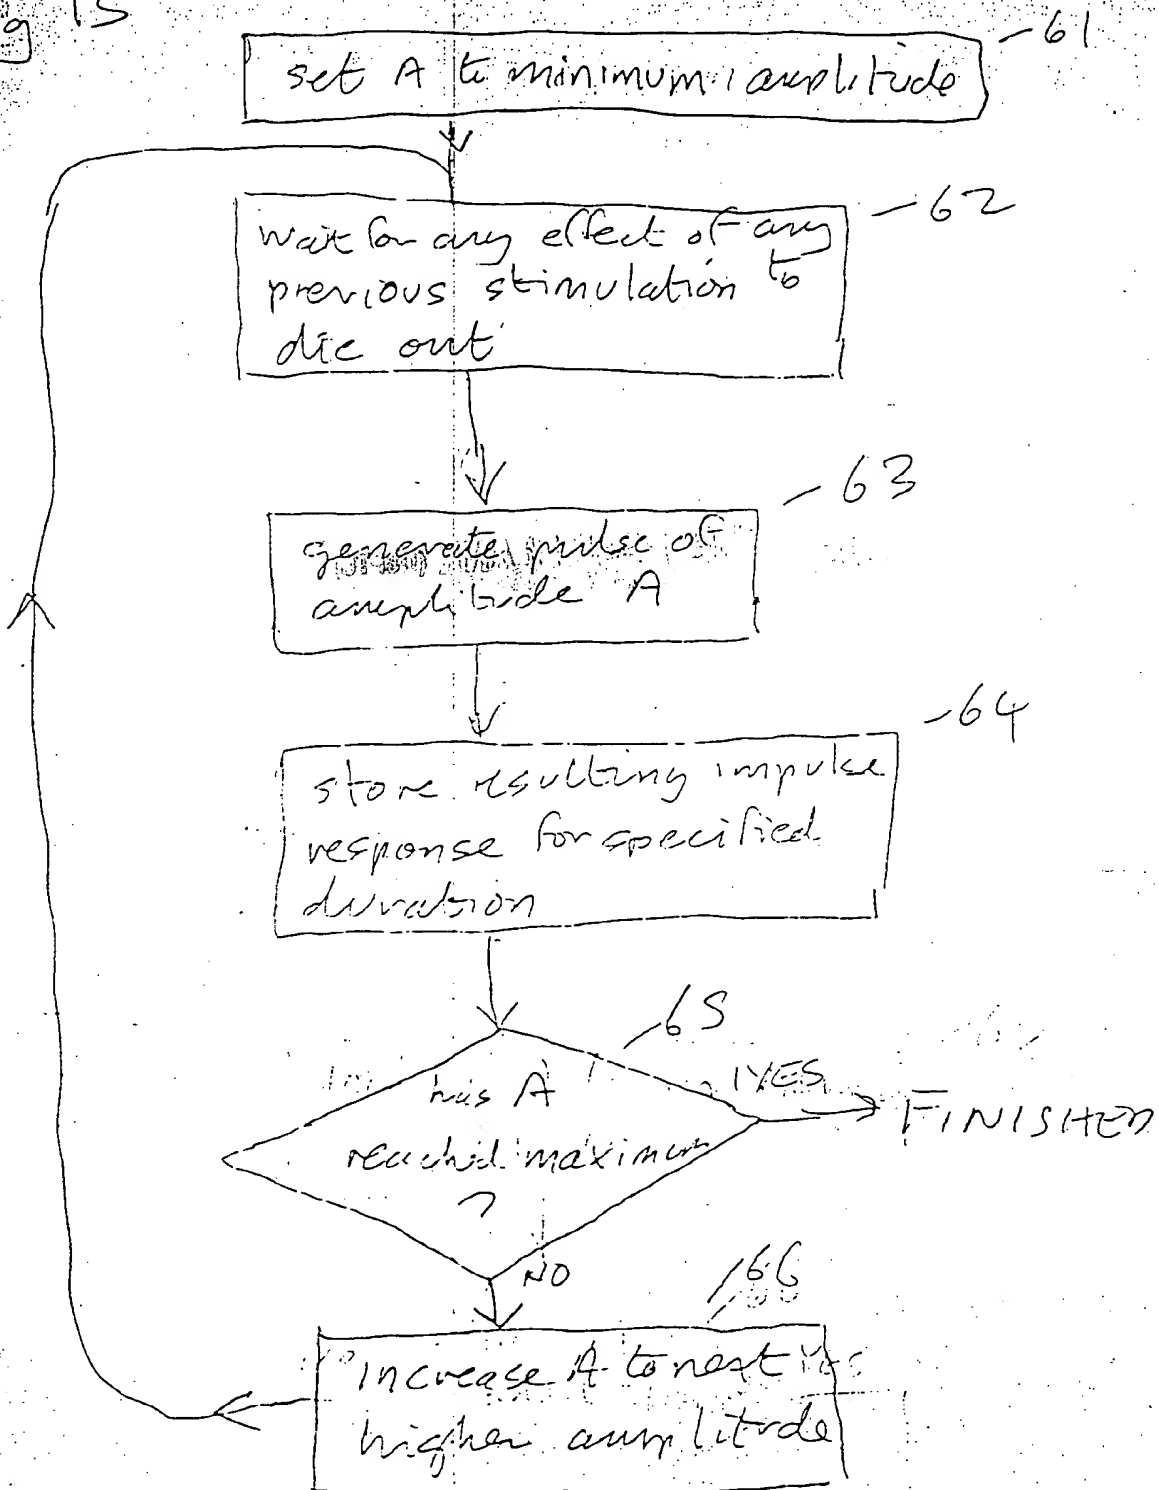 g 15
set A to minimum amplitude
61
wait for any effect of any
previous stimulation to
die out
62
generate pulse of
amplitude A
63
store resulting impulse
response for specified
duration
64
has A
reached maximum
?
65
YES
FINISHED
NO
66
increase A to next
higher amplitude